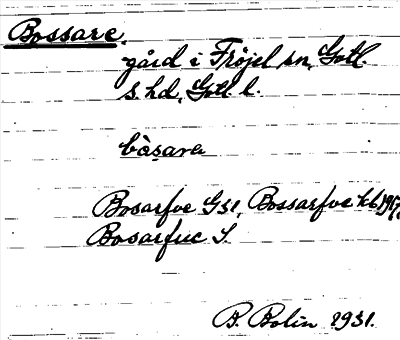 Bossare,
gård i Fröjel sn, Gotl.
s. hd, Gotl. l.
bòsara
Bosarfve GS1, Bossarfve kb
Bosarfuc S.
B. Bolin 1931.